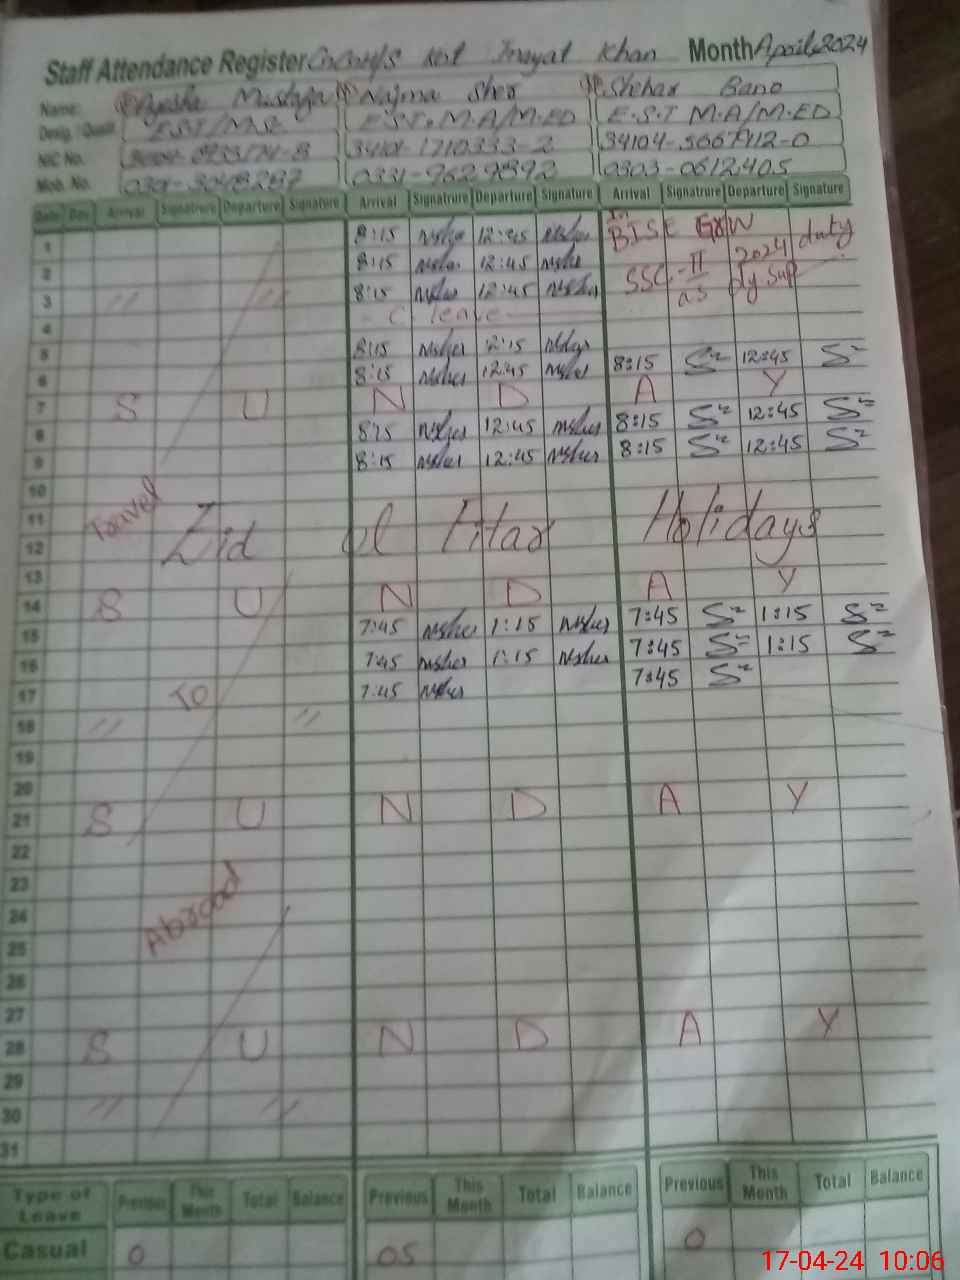 Staff Attendance Register Kot Inayat Khan Month April 2024
Name: Ayesha Mustafa Najma Sher Shehar Bano
Desig. / Qualif. E.S.T / M.Sc E.S.T. M.A/M.ED E.S.T M.A/M.ED
NIC No. 34101-1710333-2 34104-5667912-0
Mob. No. 0331-9629892 0303-0612405
Date Day Arrival Signatrure Departure Signature Arrival Signatrure Departure Signature Arrival Signatrure Departure Signature
1 8:15 nsher 12:45 nsher In BISE GRW duty
2 8:15 nsher 12:45 nsher SSC-II 2024
3 " " 8:15 nsher 12:45 nsher as dy sup
4 C. leave
5 8:15 nsher 12:15 nsher
6 8:15 nsher 12:45 nsher 8:15 12:45
7 S U N D A Y
8 8:15 nsher 12:45 nsher 8:15 12:45
9 8:15 nsher 12:45 nsher 8:15 12:45
10
11 Travel Eid ul Fitar Holidays
12
13
14 S U N D A Y
15 7:45 nsher 1:15 nsher 7:45 1:15
16 7:45 nsher 1:15 nsher 7:45 1:15
17 To 7:45 nsher 7:45
18 " "
19
20
21 S U N D A Y
22
23
24 Abroad
25
26
27
28 S U N D A Y
29
30 " "
31
Type of Leave Previous This Month Total Balance Previous This Month Total Balance Previous This Month Total Balance
Casual 0 05 0
17-04-24 10:06